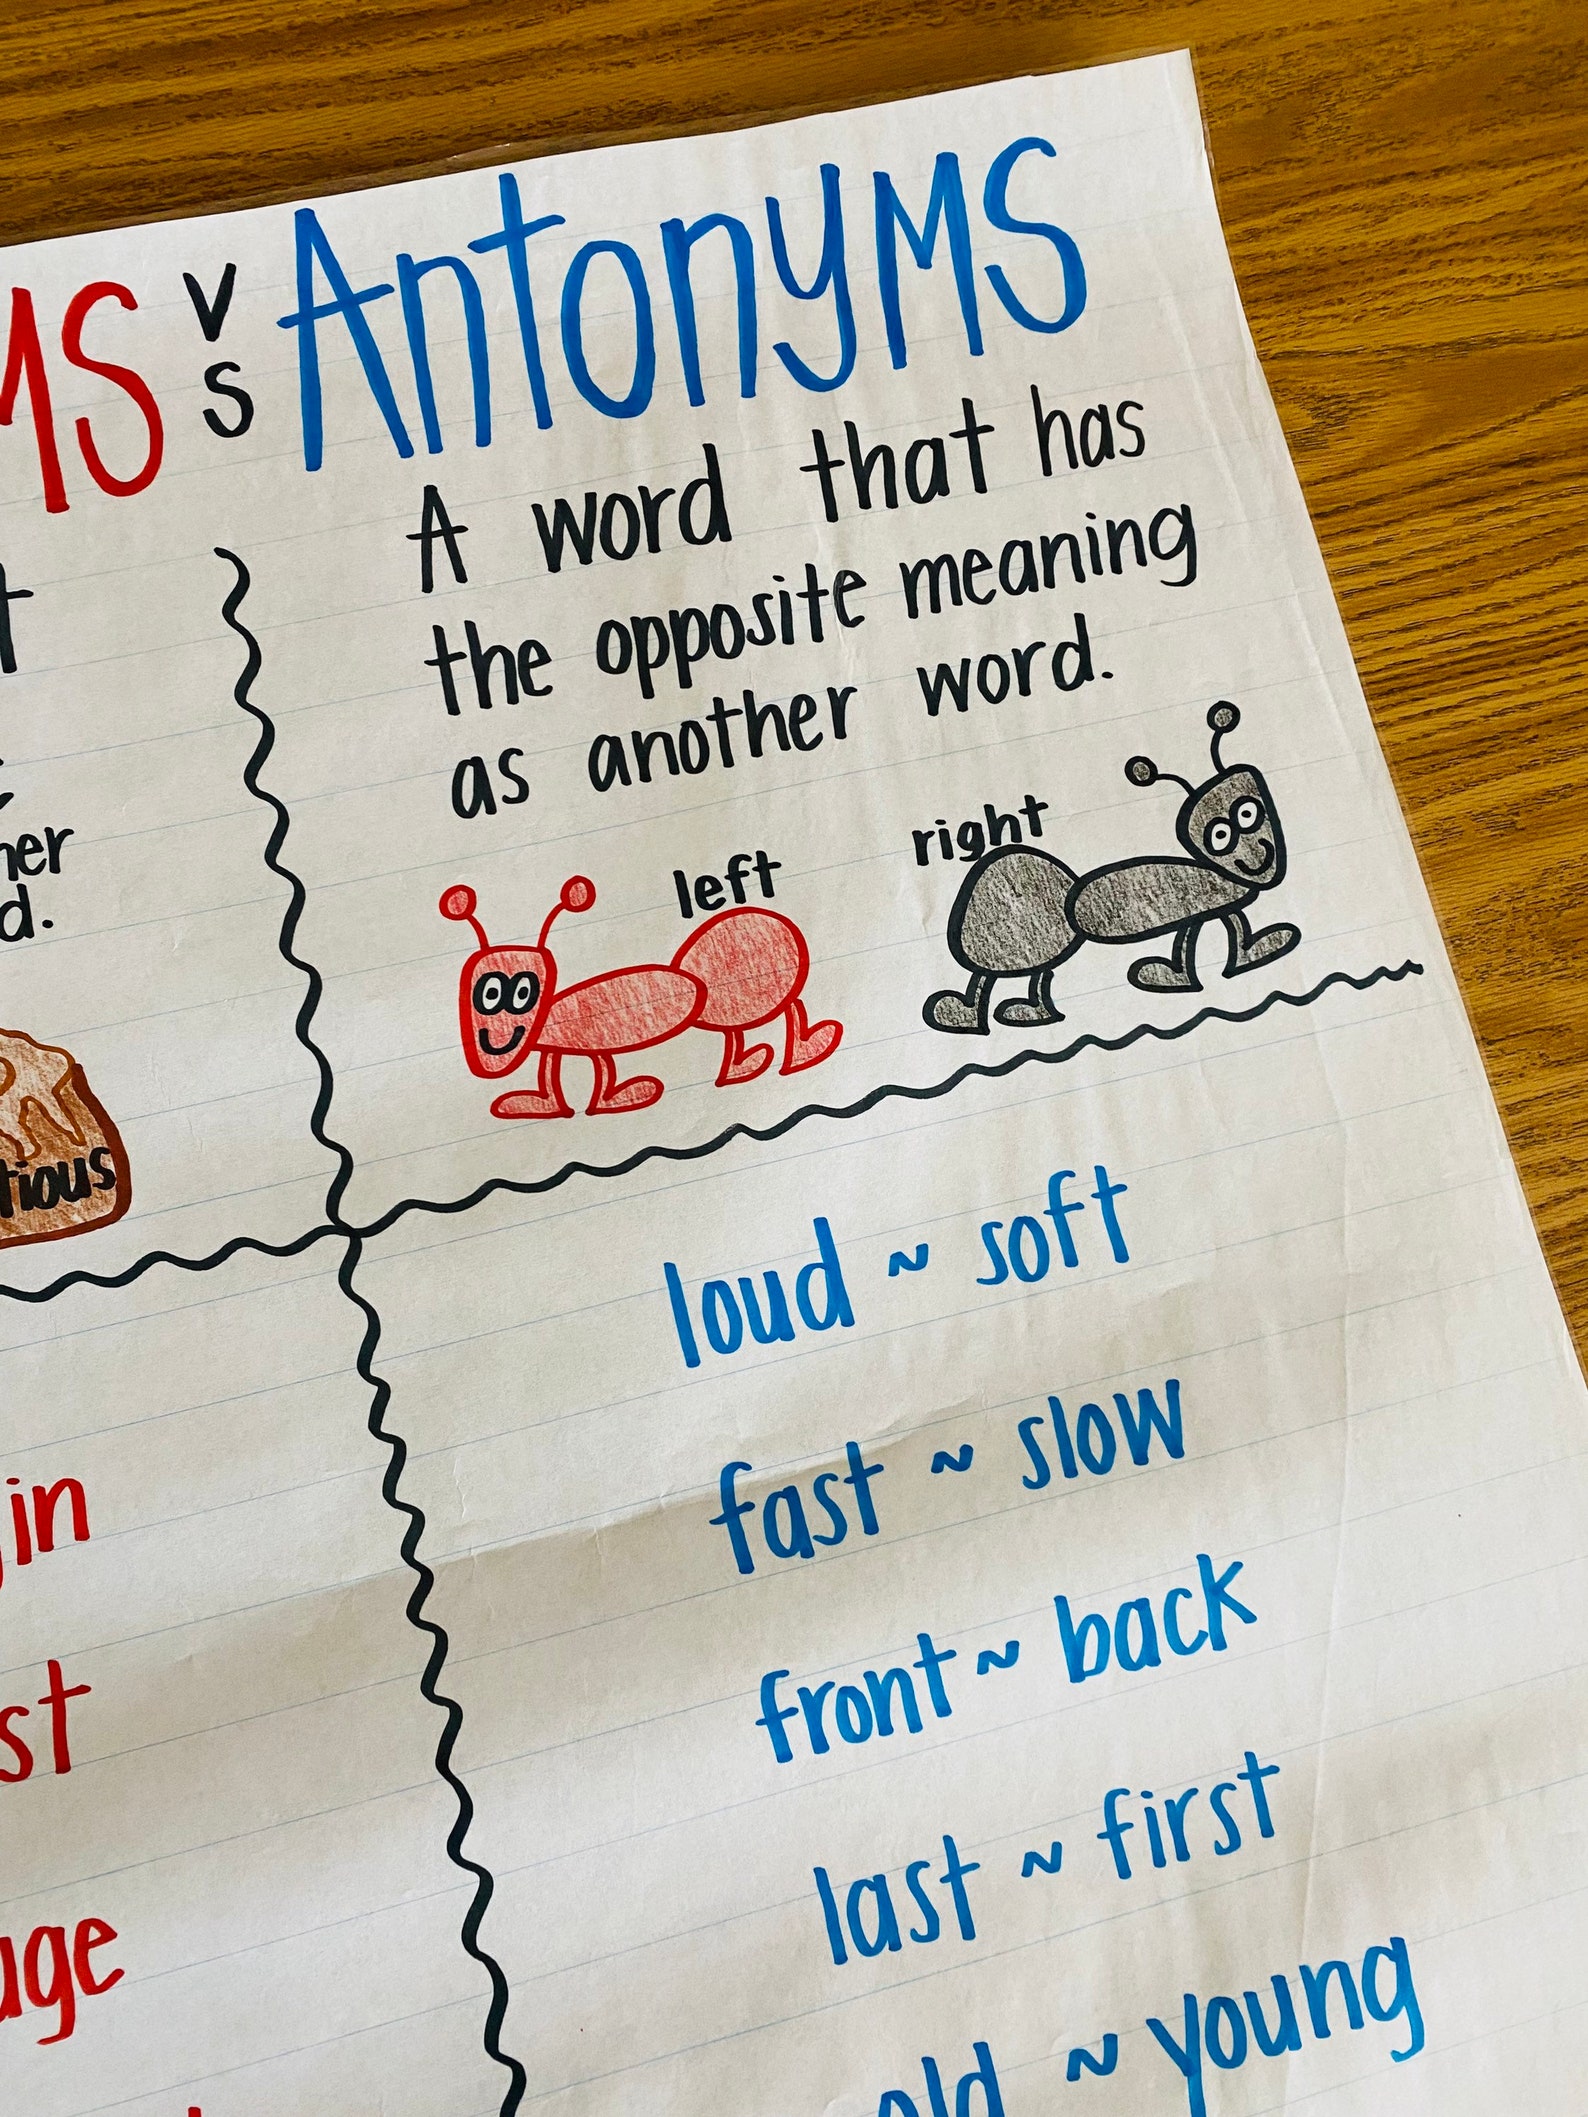 MS vs Antonyms
A word that has
the opposite meaning
as another word.
left
right
loud ~ soft
fast ~ slow
front ~ back
last ~ first
old ~ young
t
her
d.
tious
in
st
uge